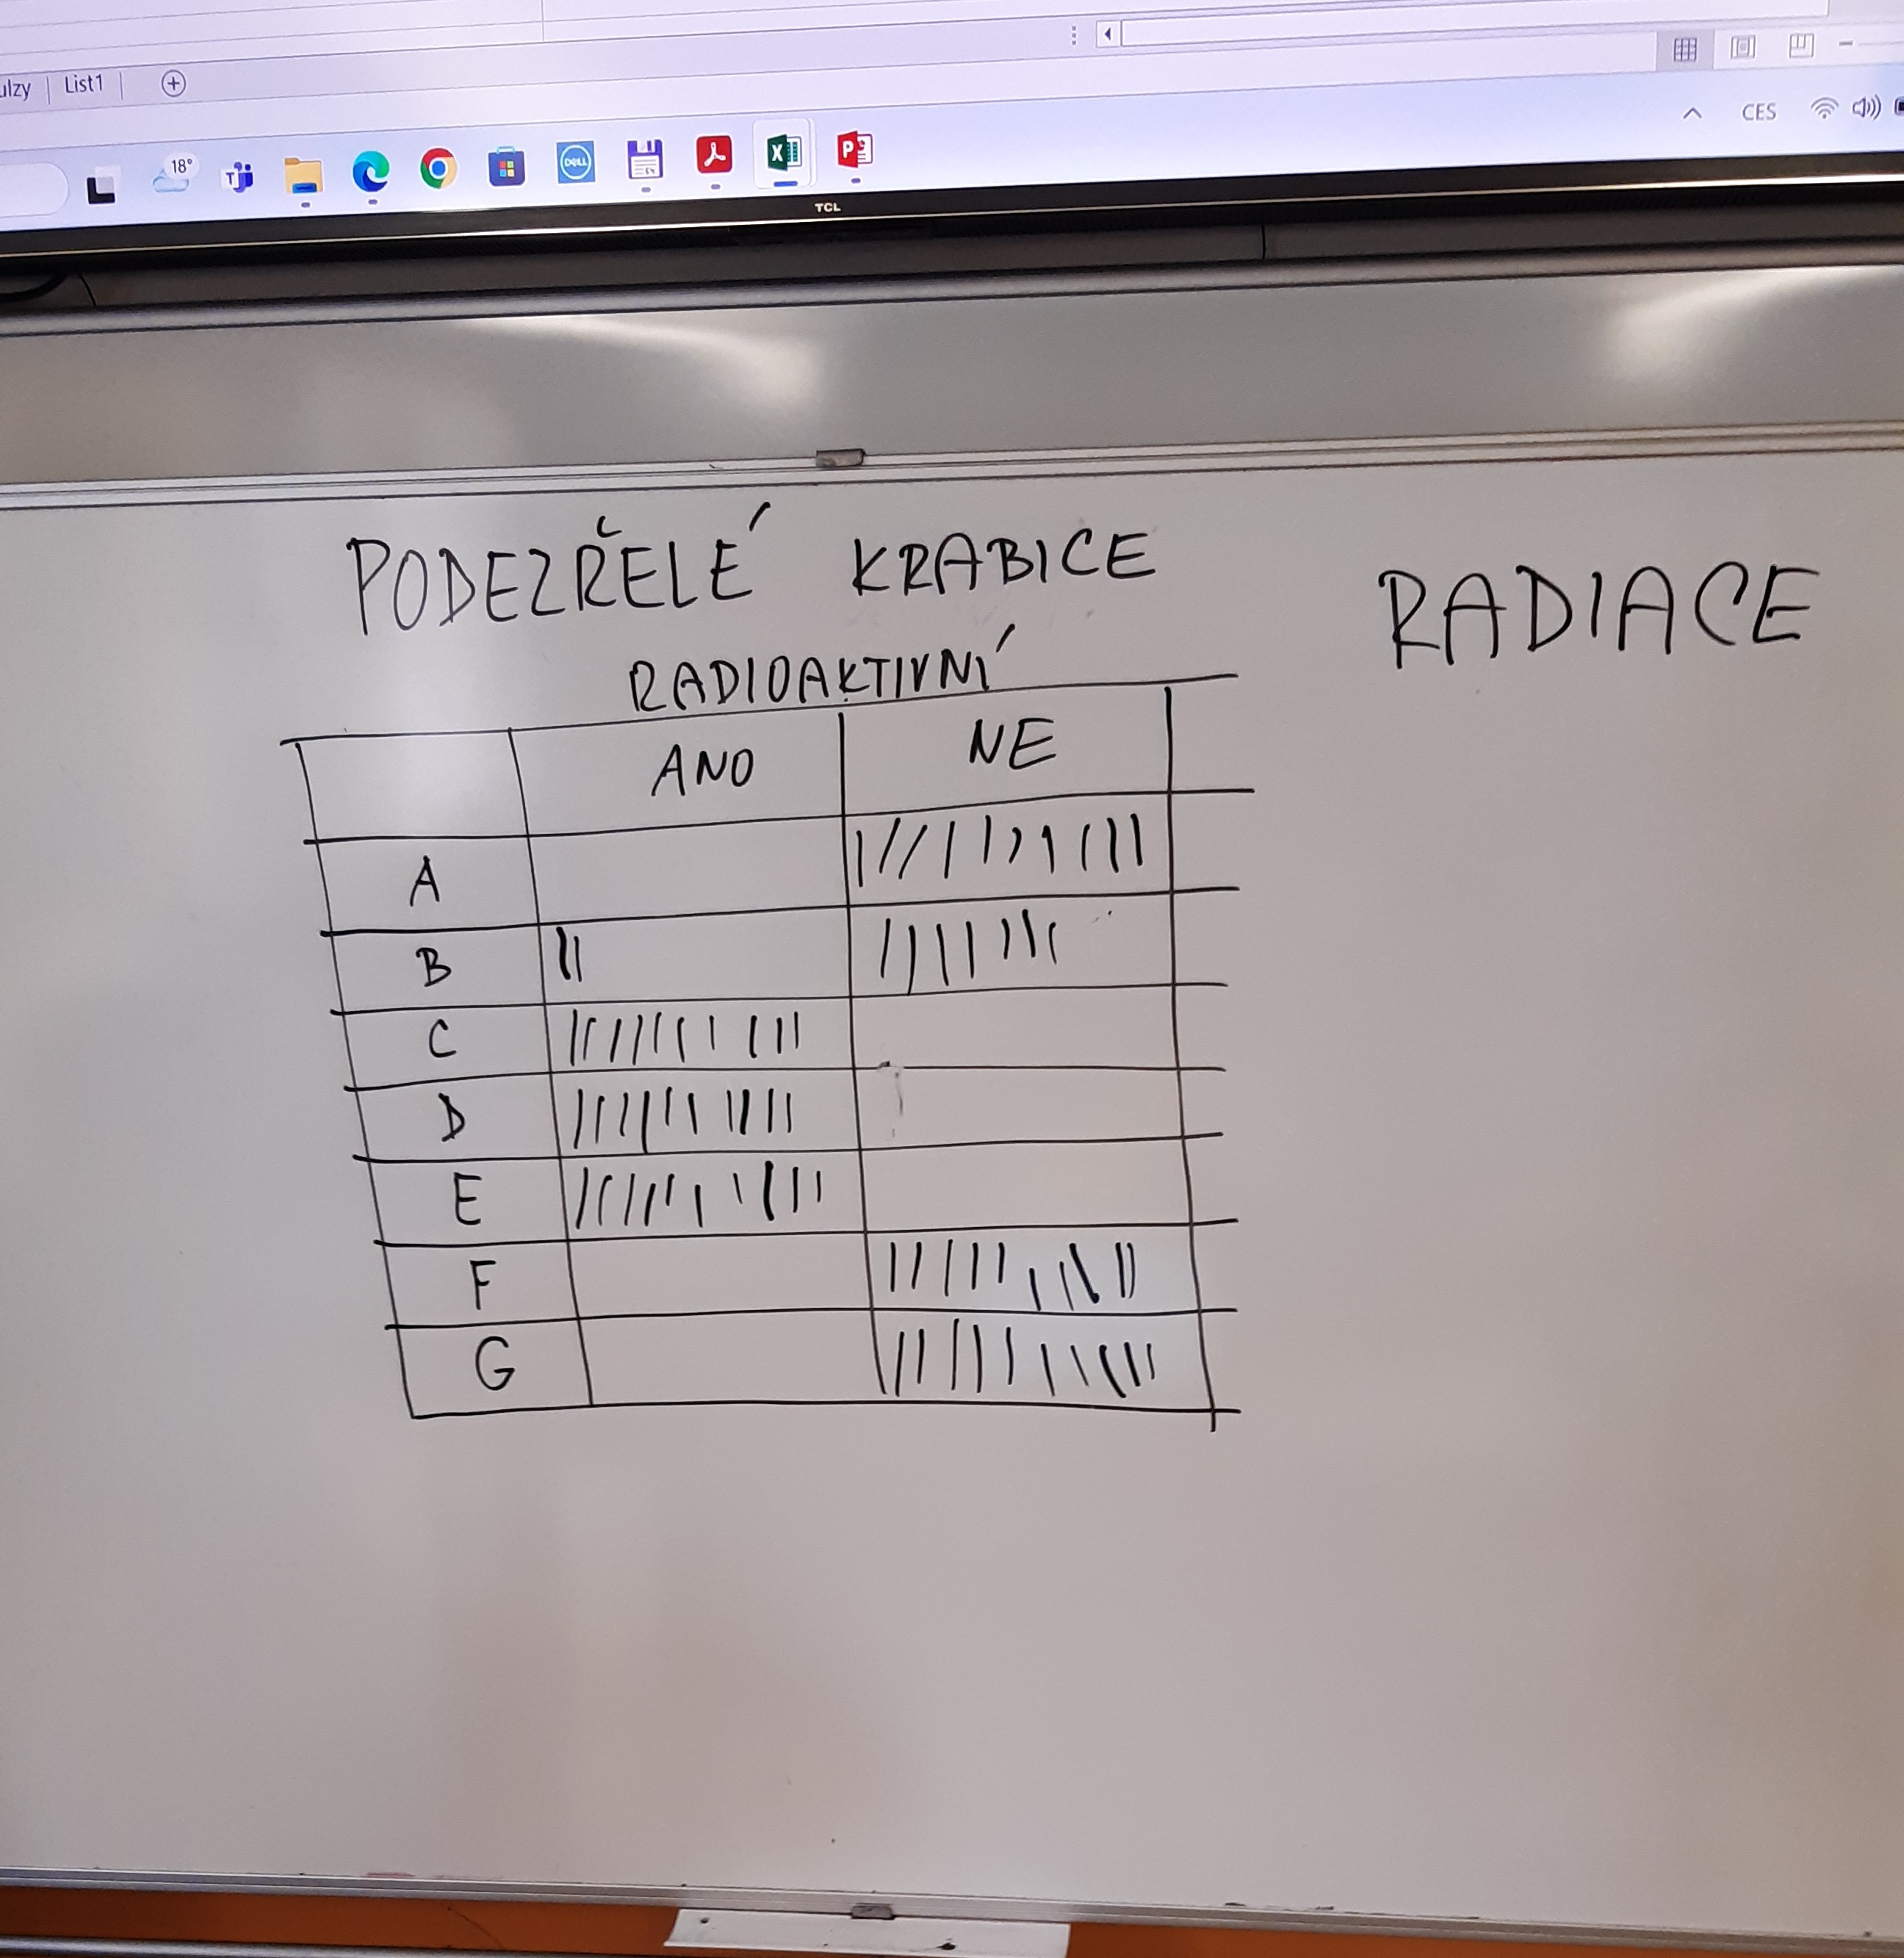 ulzy List1
18° CES
DELL
TCL
PODEZŘELÉ KRABICE
RADIACE
RADIOAKTIVNÍ
ANO NE
A
B
C
D
E
F
G